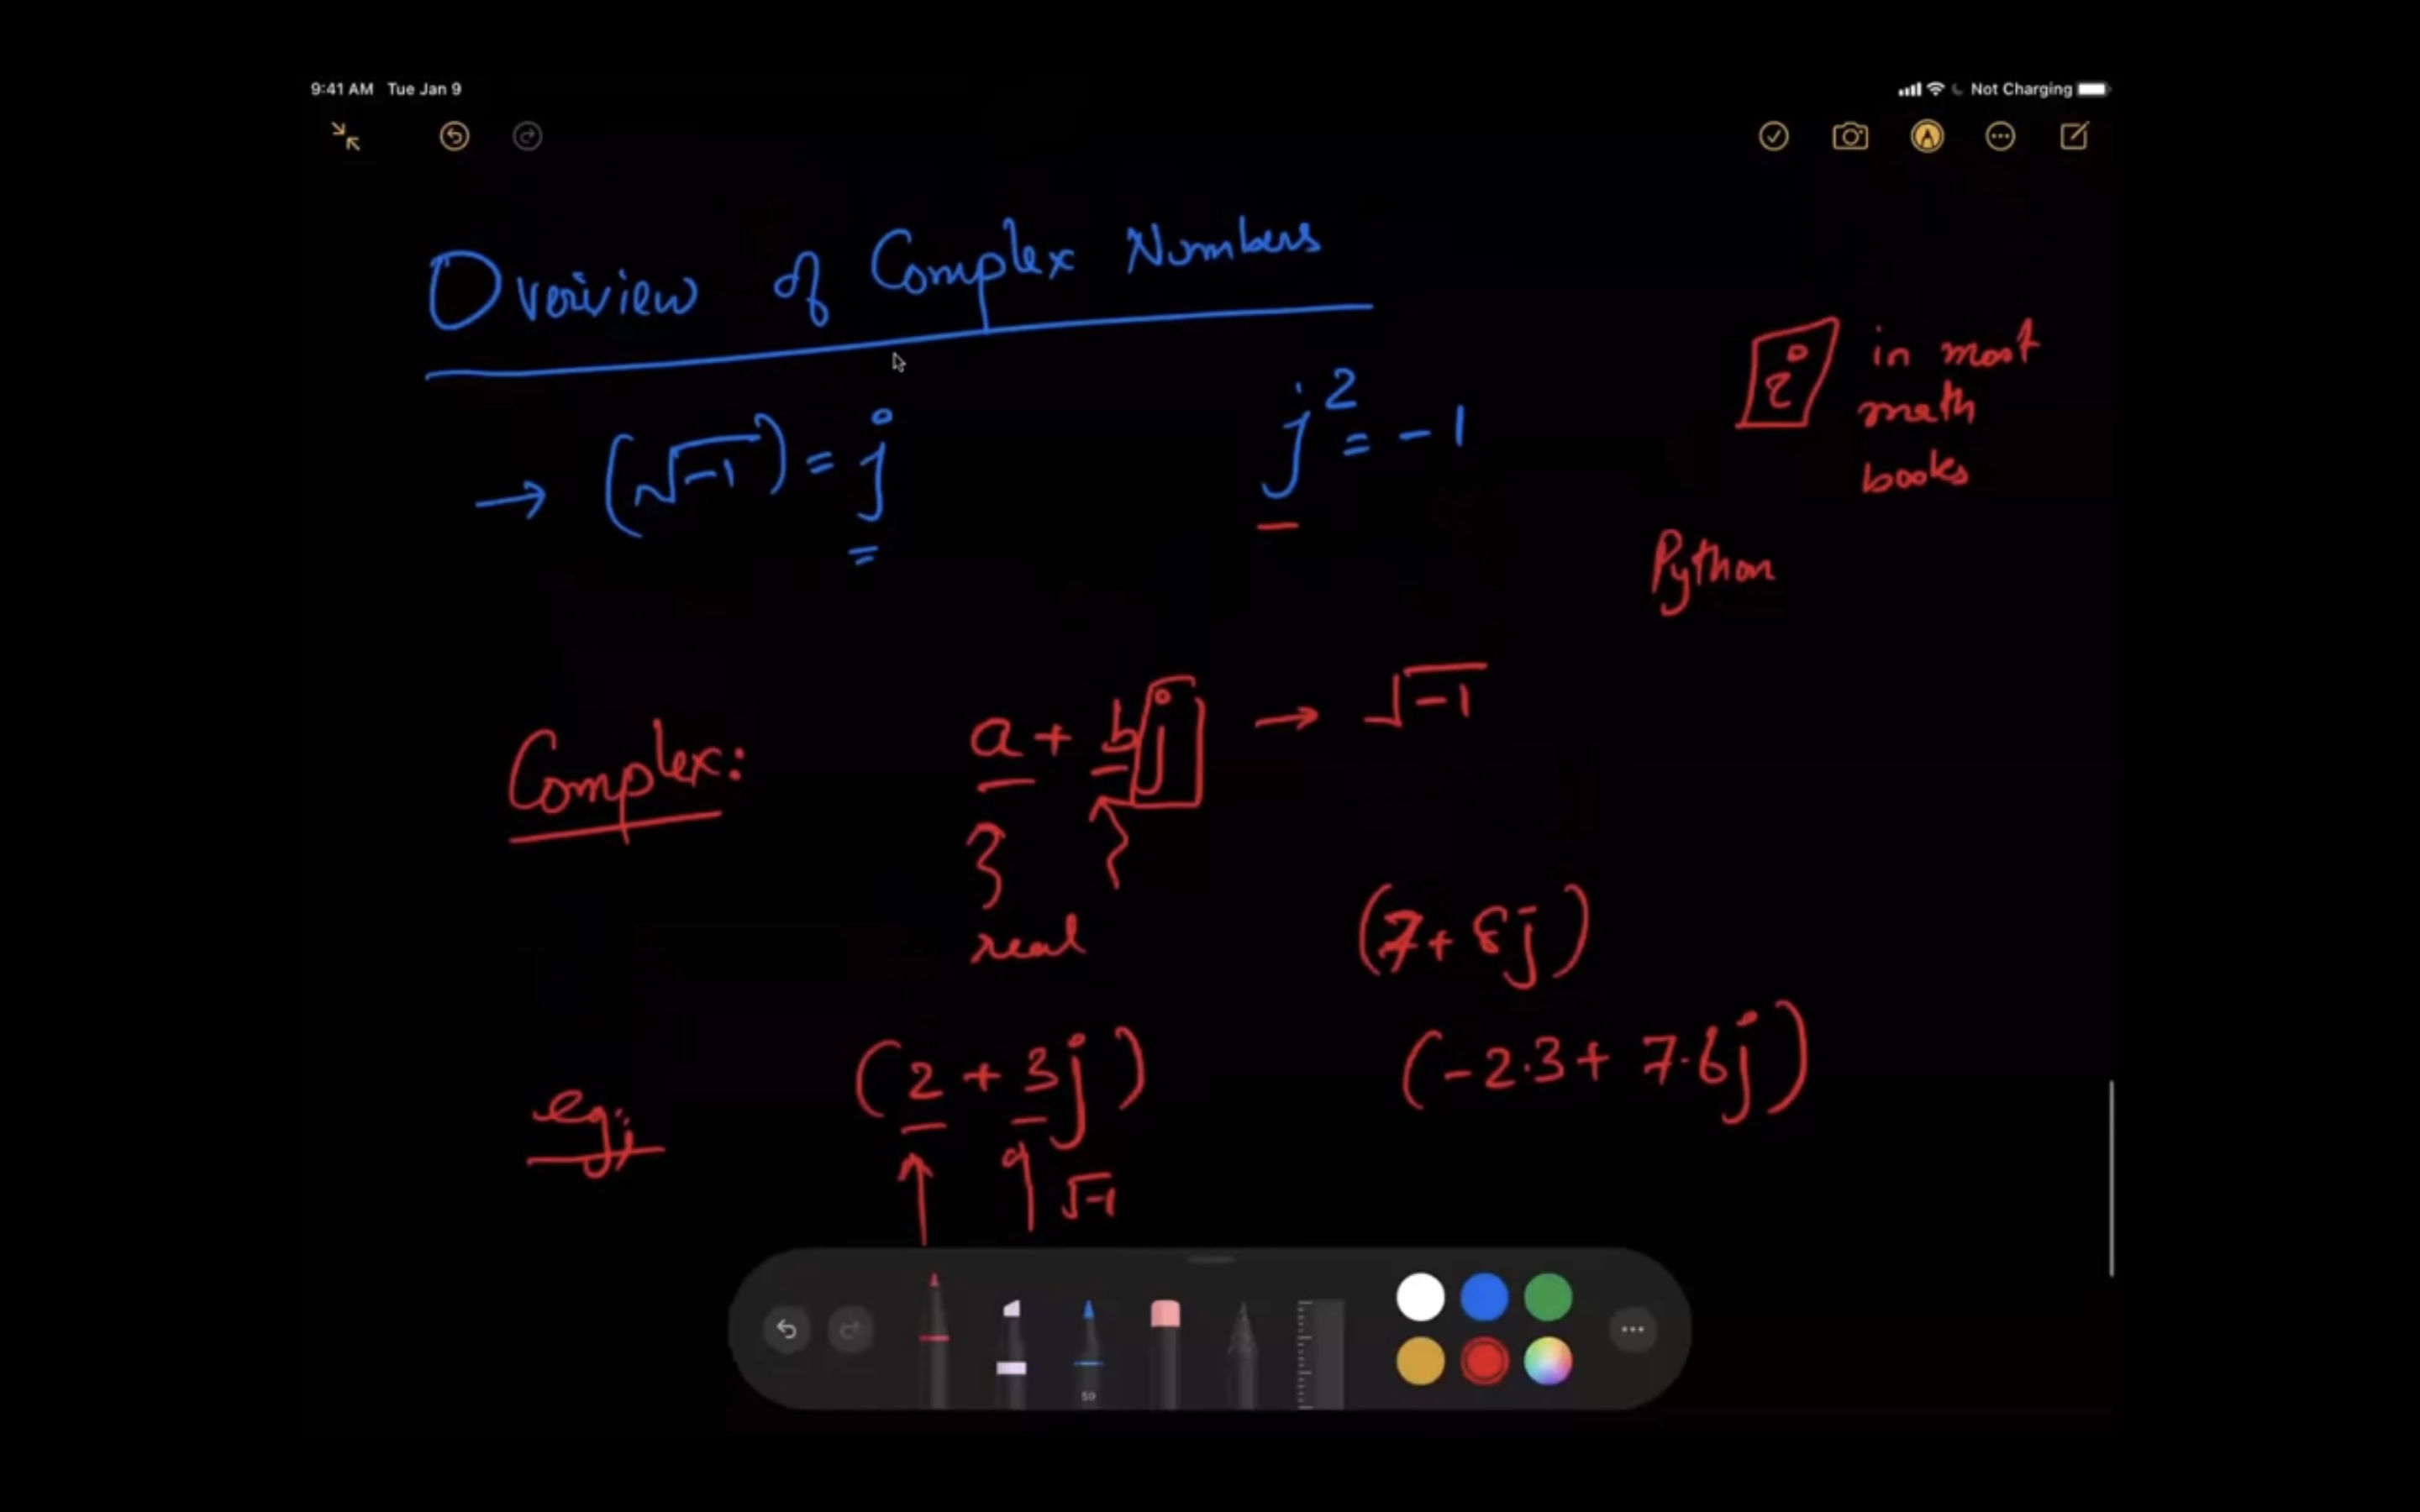 9:41 AM Tue Jan 9
Not Charging
Overview of Complex Numbers
→ (√-1) = j
j² = -1
i in most
math
books
Python
Complex:
a + bj → √-1
real
(7+ 8j)
eg;
(2 + 3j)
(-2.3+ 7.6j)
√-1
50